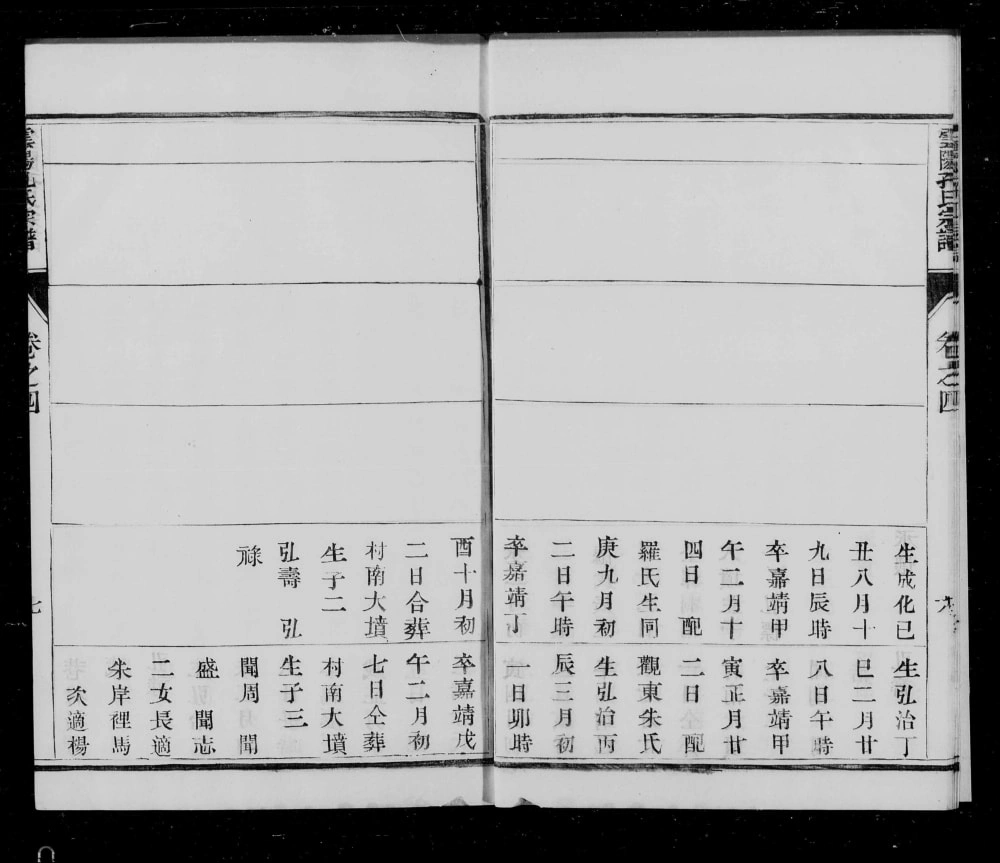 雲陽孔氏宗譜
卷之四
六
生成化巳
丑八月十
九日辰時
卒嘉靖甲
午二月十
四日 配
羅氏生同
庚九月初
二日午時
卒嘉靖丁
生弘治丁
巳二月廿
八日午時
卒嘉靖甲
寅正月廿
二日 配
觀東朱氏
生弘治丙
辰三月初
一日卯時
酉十月初
二日合葬
村南大墳
生子二
弘壽 弘
祿
卒嘉靖戊
午二月初
七日仝葬
村南大墳
生子三
聞周 聞
盛 聞志
二女長適
朱岸裡馬
次適楊
雲陽孔氏宗譜
卷之四
七